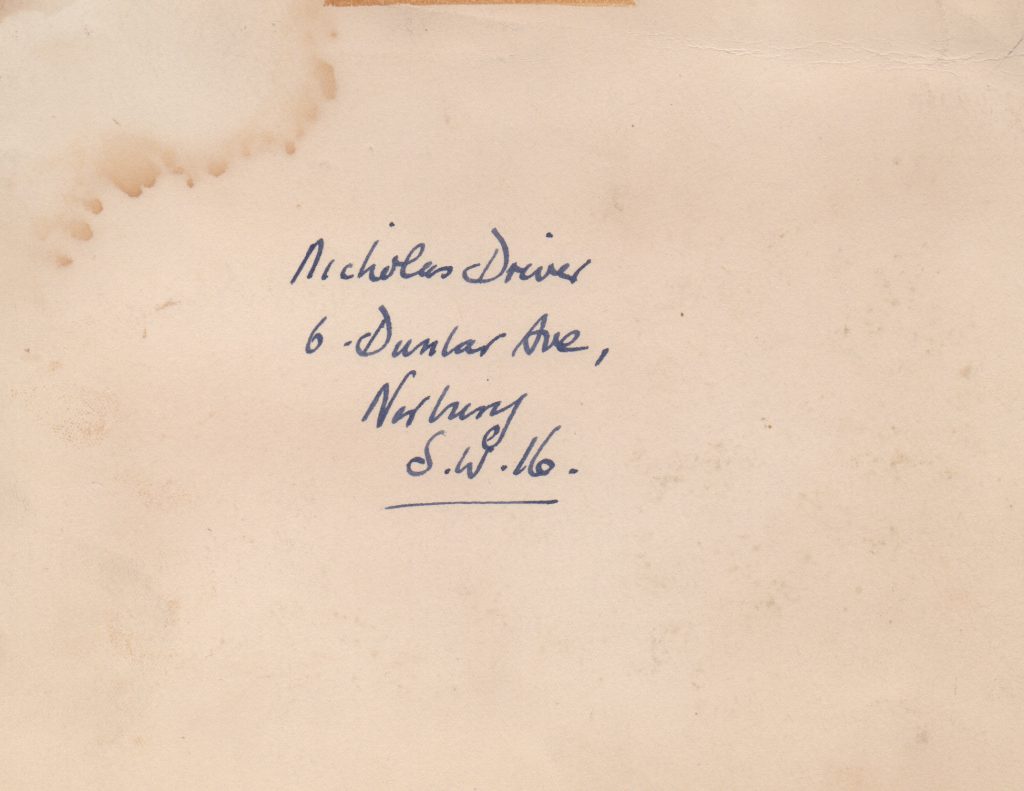 Nicholas Driver
6 . Dunbar Ave,
Norbury
S.W.16.